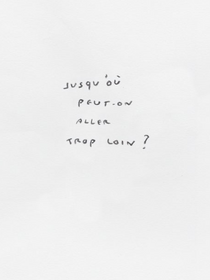 JUSQU'OÙ
PEUT-ON
ALLER
TROP LOIN ?